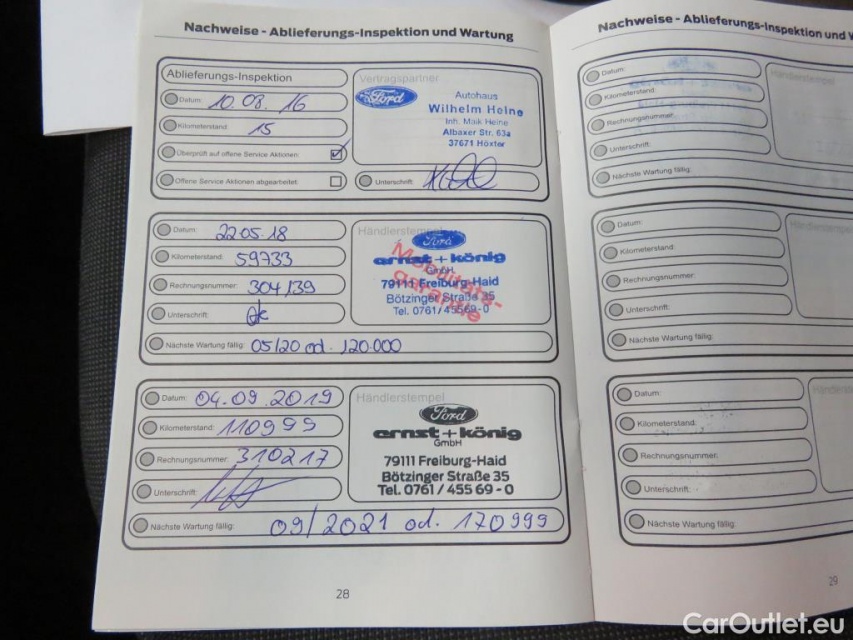 Nachweise - Ablieferungs-Inspektion und Wartung
Ablieferungs-Inspektion
Datum: 10.08.16
Kilometerstand: 15
Überprüft auf offene Service Aktionen
Offene Service Aktionen abgearbeitet:
Vertragspartner
Ford
Autohaus
Wilhelm Heine
Inh. Maik Heine
Albaxer Str. 63a
37671 Höxter
Unterschrift:
Datum: 22.05.18
Kilometerstand: 59733
Rechnungsnummer: 304139
Unterschrift:
Nächste Wartung fällig: 05/20 od. 120.000
Händlerstempel
Ford
ernst+könig
GmbH
79111 Freiburg-Haid
Bötzinger Straße 35
Tel. 0761/45569-0
Mobilitäts-
garantie
Datum: 04.09.2019
Kilometerstand: 110999
Rechnungsnummer: 310217
Unterschrift:
Nächste Wartung fällig: 09/2021 od. 170999
Händlerstempel
Ford
ernst+könig
GmbH
79111 Freiburg-Haid
Bötzinger Straße 35
Tel. 0761/455 69-0
28
Nachweise - Ablieferungs-Inspektion und W
Datum:
Kilometerstand:
Rechnungsnummer:
Unterschrift:
Nächste Wartung fällig:
Händlerstempel
Datum:
Kilometerstand:
Rechnungsnummer:
Unterschrift:
Nächste Wartung fällig:
Händlerstempel
Datum:
Kilometerstand:
Rechnungsnummer:
Unterschrift:
Nächste Wartung fällig:
29
CarOutlet.eu